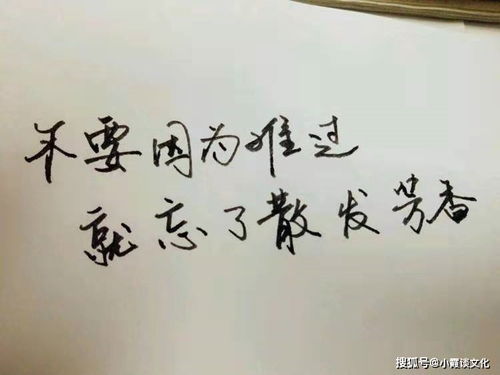 不要因为难过
就忘了散发芳香
搜狐号@小霞谈文化